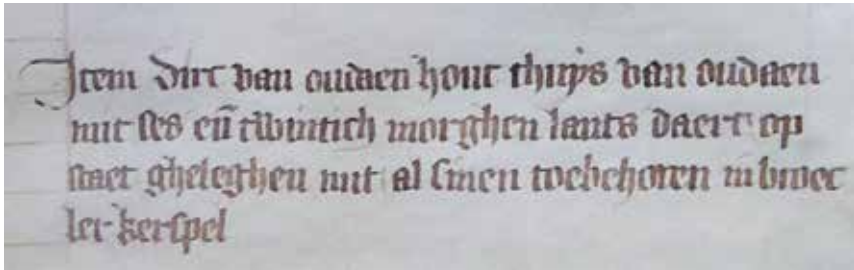 Item dirc van oudaen hout thuys van oudaen
mit ses en̄ twintich morghen lants daert op
staet gheleghen mit al sinen toebehoren in broec
ler kerspel